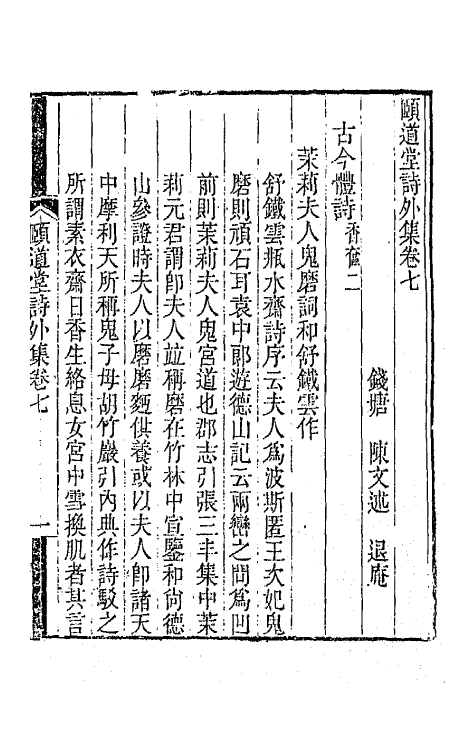 頤道堂詩外集卷七
錢塘 陳文述 退庵
古今體詩香奩二
茉莉夫人鬼磨詞和舒鐵雲作
舒鐵雲瓶水齋詩序云夫人爲波斯匿王次妃鬼
磨則頑石耳袁中郎遊德山記云兩巒之間爲凹
前則茉莉夫人鬼宮道也郡志引張三丰集中茉
莉元君謂卽夫人並稱磨在竹林中宣鑒和尚德
山參證時夫人以磨磨麵供養或以夫人卽諸天
中摩利天所稱鬼子母胡竹巖引內典作詩駁之
所謂素衣齋日香生絡息女宮中雪換肌者其言
頤道堂詩外集卷七
一